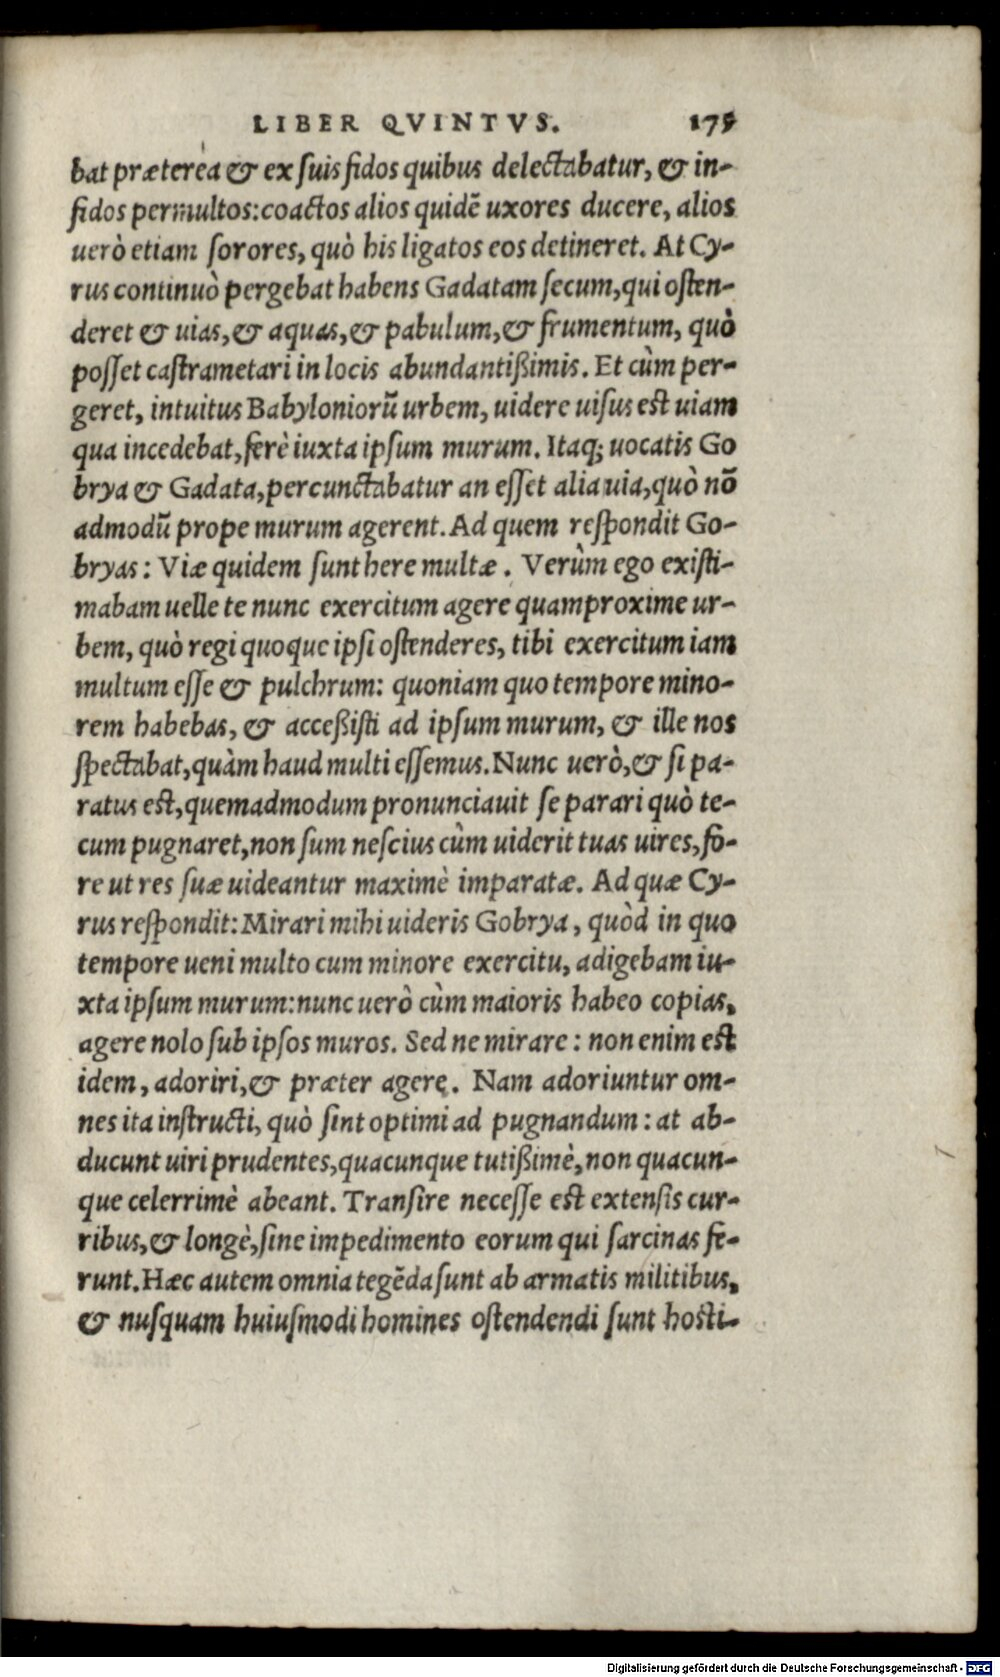 LIBER QVINTVS. 175
bat prætereà & ex suis fidos quibus delectabatur, & in-
fidos permultos: coactos alios quidẽ uxores ducere, alios
uerò etiam sorores, quò his ligatos eos detineret. At Cy-
rus continuò pergebat habens Gadatam secum, qui osten-
deret & uias, & aquas, & pabulum, & frumentum, quò
posset castrametari in locis abundantißimis. Et cùm per-
geret, intuitus Babyloniorũ urbem, uidere uisus est uiam
qua incedebat, ferè iuxta ipsum murum. Itaq; uocatis Go
brya & Gadata, percunctabatur an esset alia uia, quò nõ
admodũ prope murum agerent. Ad quem respondit Go-
bryas: Viæ quidem sunt here multæ. Verùm ego existi-
mabam uelle te nunc exercitum agere quamproxime ur-
bem, quò regi quoque ipsi ostenderes, tibi exercitum iam
multum esse & pulchrum: quoniam quo tempore mino-
rem habebas, & accessisti ad ipsum murum, & ille nos
spectabat, quàm haud multi essemus. Nunc uerò, & si pa-
ratus est, quemadmodum pronunciauit se parari quò te-
cum pugnaret, non sum nescius cùm uiderit tuas uires, fo-
re ut res suæ uideantur maximè imparatæ. Ad quæ Cy-
rus respondit: Mirari mihi uideris Gobrya, quòd in quo
tempore ueni multo cum minore exercitu, adigebam iu-
xta ipsum murum: nunc uerò cùm maioris habeo copias,
agere nolo sub ipsos muros. Sed ne mirare: non enim est
idem, adoriri, & præter agere. Nam adoriuntur om-
nes ita instructi, quò sint optimi ad pugnandum: at ab-
ducunt uiri prudentes, quacunque tutißimè, non quacun-
que celerrimè abeant. Transire necesse est extensis cur-
ribus, & longè, sine impedimento eorum qui sarcinas fe-
runt. Hæc autem omnia tegẽda sunt ab armatis militibus,
& nusquam huiusmodi homines ostendendi sunt hosti-
Digitalisierung gefördert durch die Deutsche Forschungsgemeinschaft - DFG